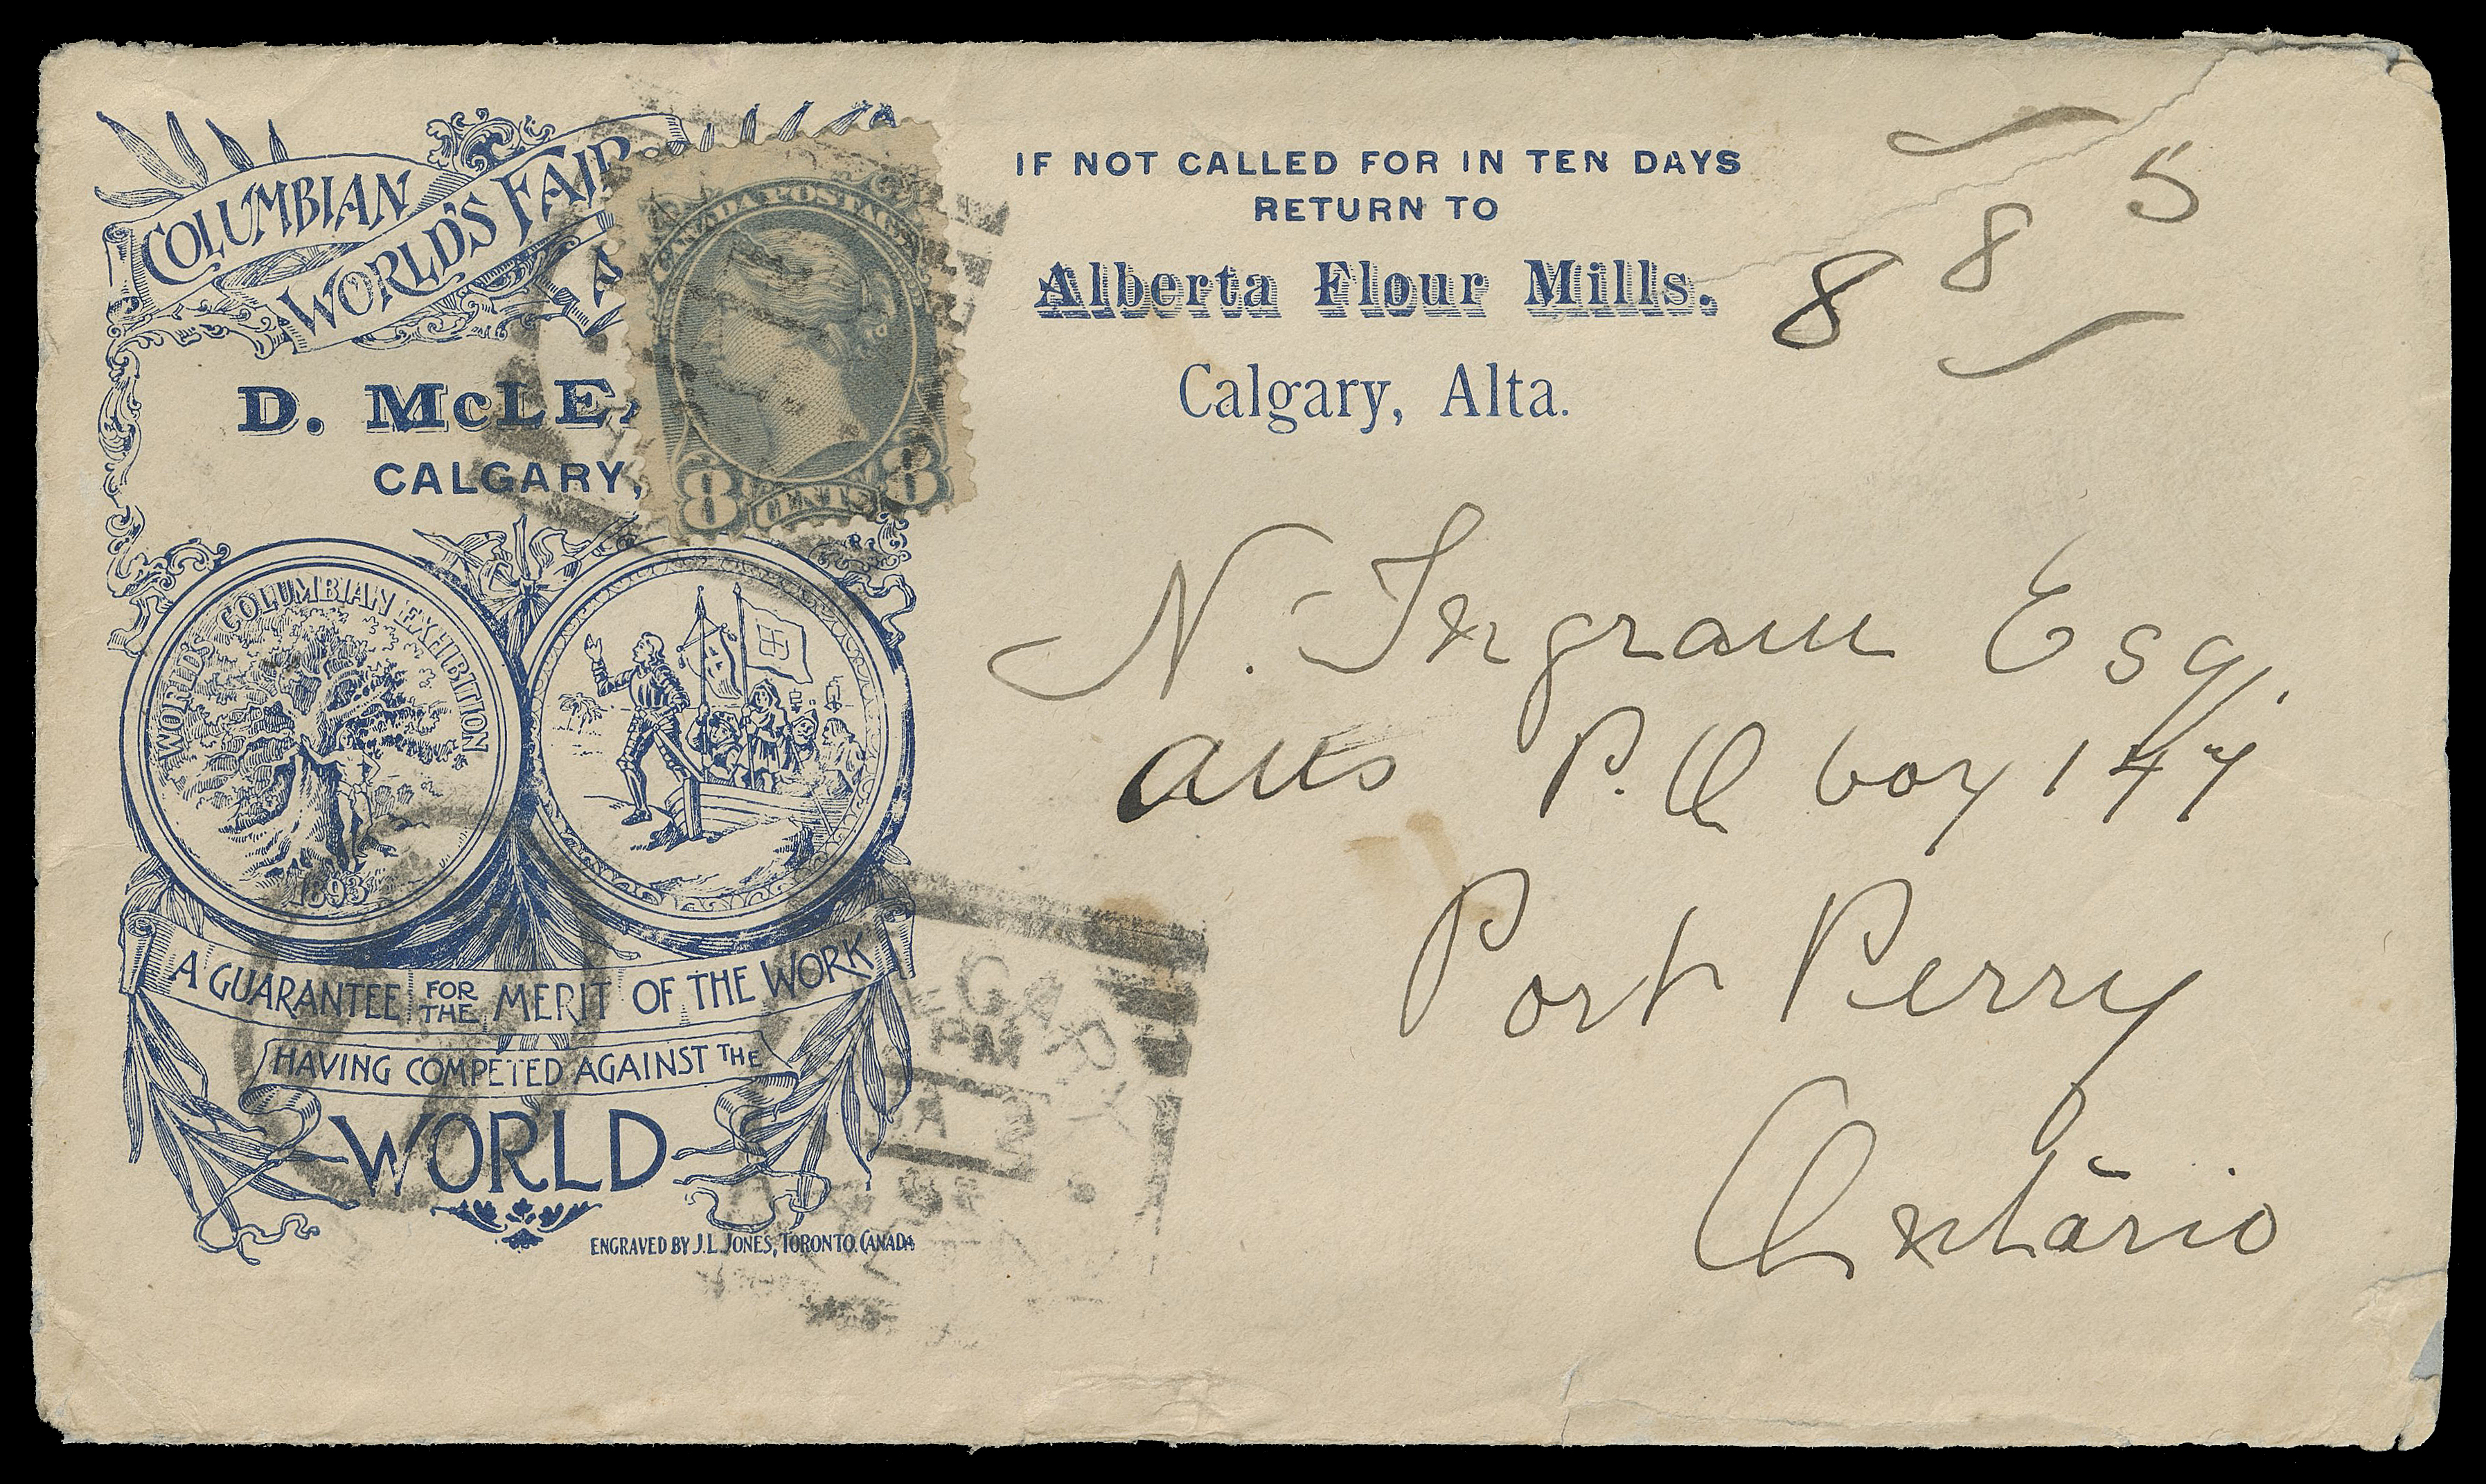 COLUMBIAN
WORLD'S FAIR
D. McLE
CALGARY,
CANADA POSTAGE
8 CENTS 8
WORLD'S COLUMBIAN EXHIBITION
1893
A GUARANTEE FOR THE MERIT OF THE WORK
HAVING COMPETED AGAINST THE
WORLD
ENGRAVED BY J.L. JONES, TORONTO. CANADA
IF NOT CALLED FOR IN TEN DAYS
RETURN TO
Alberta Flour Mills.
Calgary, Alta.
8 8 5
N. Ingram Esq.
P.O box 147
Port Perry
Ontario
PM
JA 2